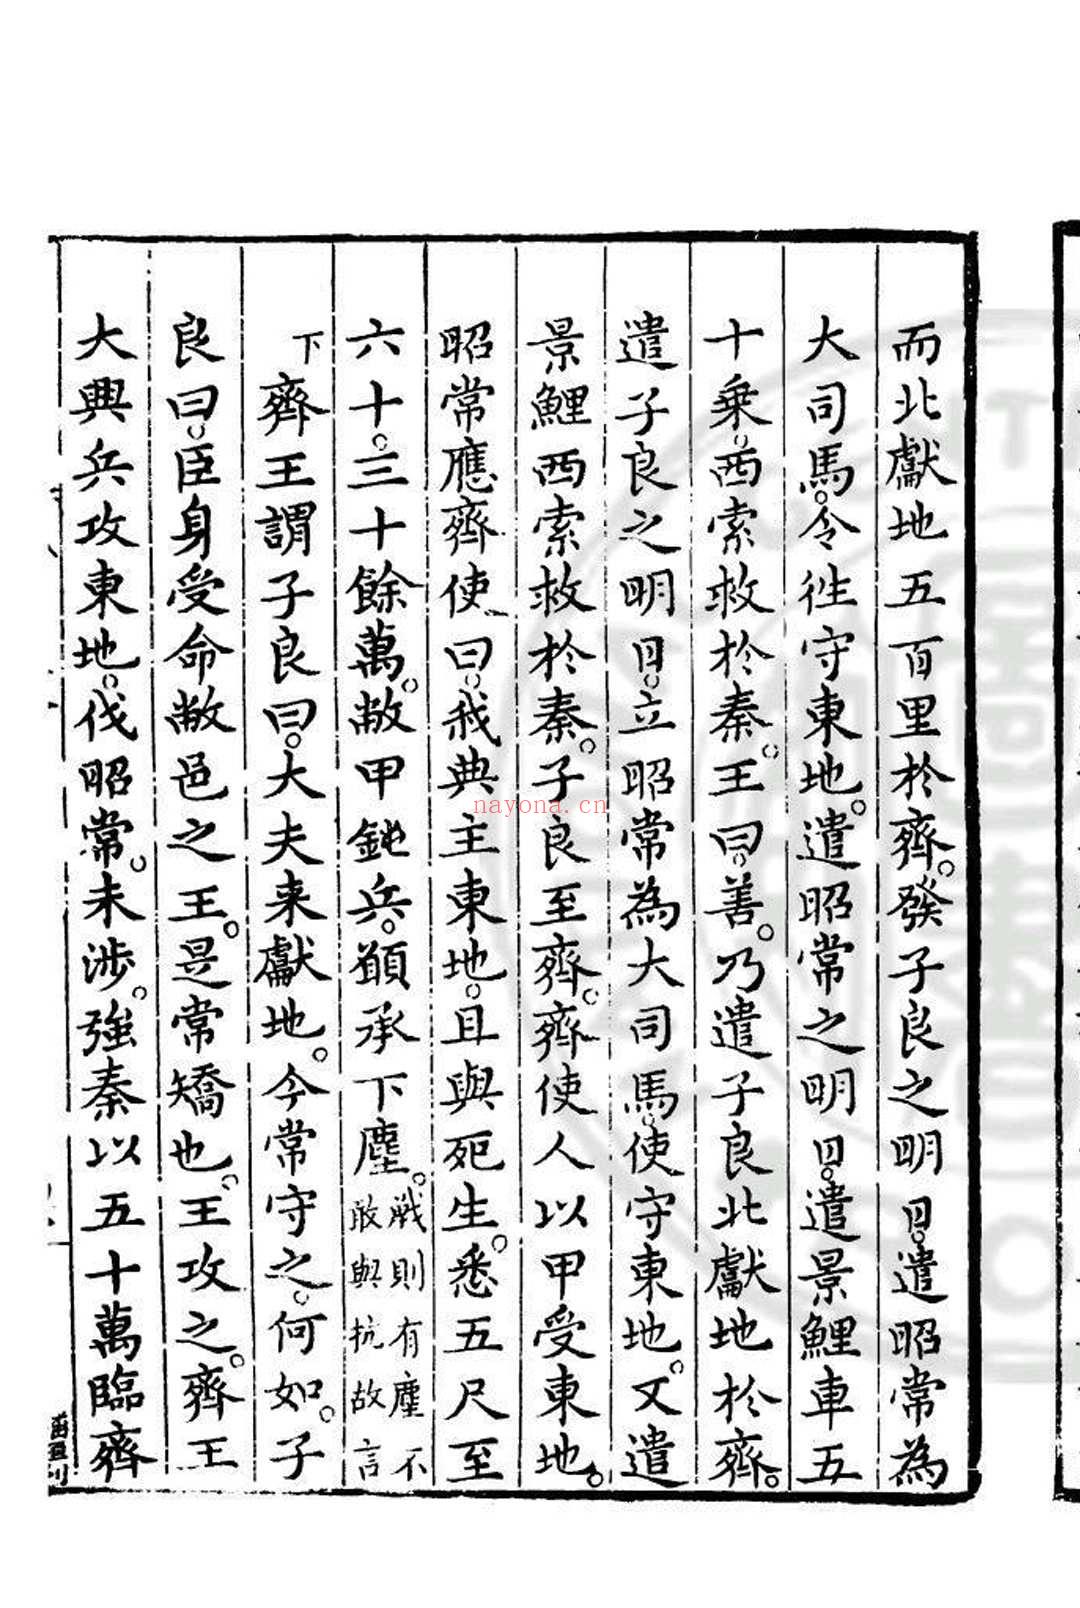 而北獻地五百里於齊。發子良之明日。遣昭常為
大司馬。令徃守東地。遣昭常之明日。遣景鯉車五
十乗。西索救於秦。王曰。善。乃遣子良北獻地於齊。
遣子良之明日。立昭常為大司馬。使守東地。又遣
景鯉西索救於秦。子良至齊。齊使人以甲受東地。
昭常應齊使曰。我典主東地。且與死生。悉五尺至
六十。三十餘萬。敝甲鈍兵。願承下塵。戰則有塵不
敢與抗故言
下
齊王謂子良曰。大夫来獻地。今常守之。何如。子
良曰。臣身受命敝邑之王。是常矯也。王攻之。齊王
大興兵攻東地。伐昭常。未涉。強秦以五十萬臨齊
nayona.cn